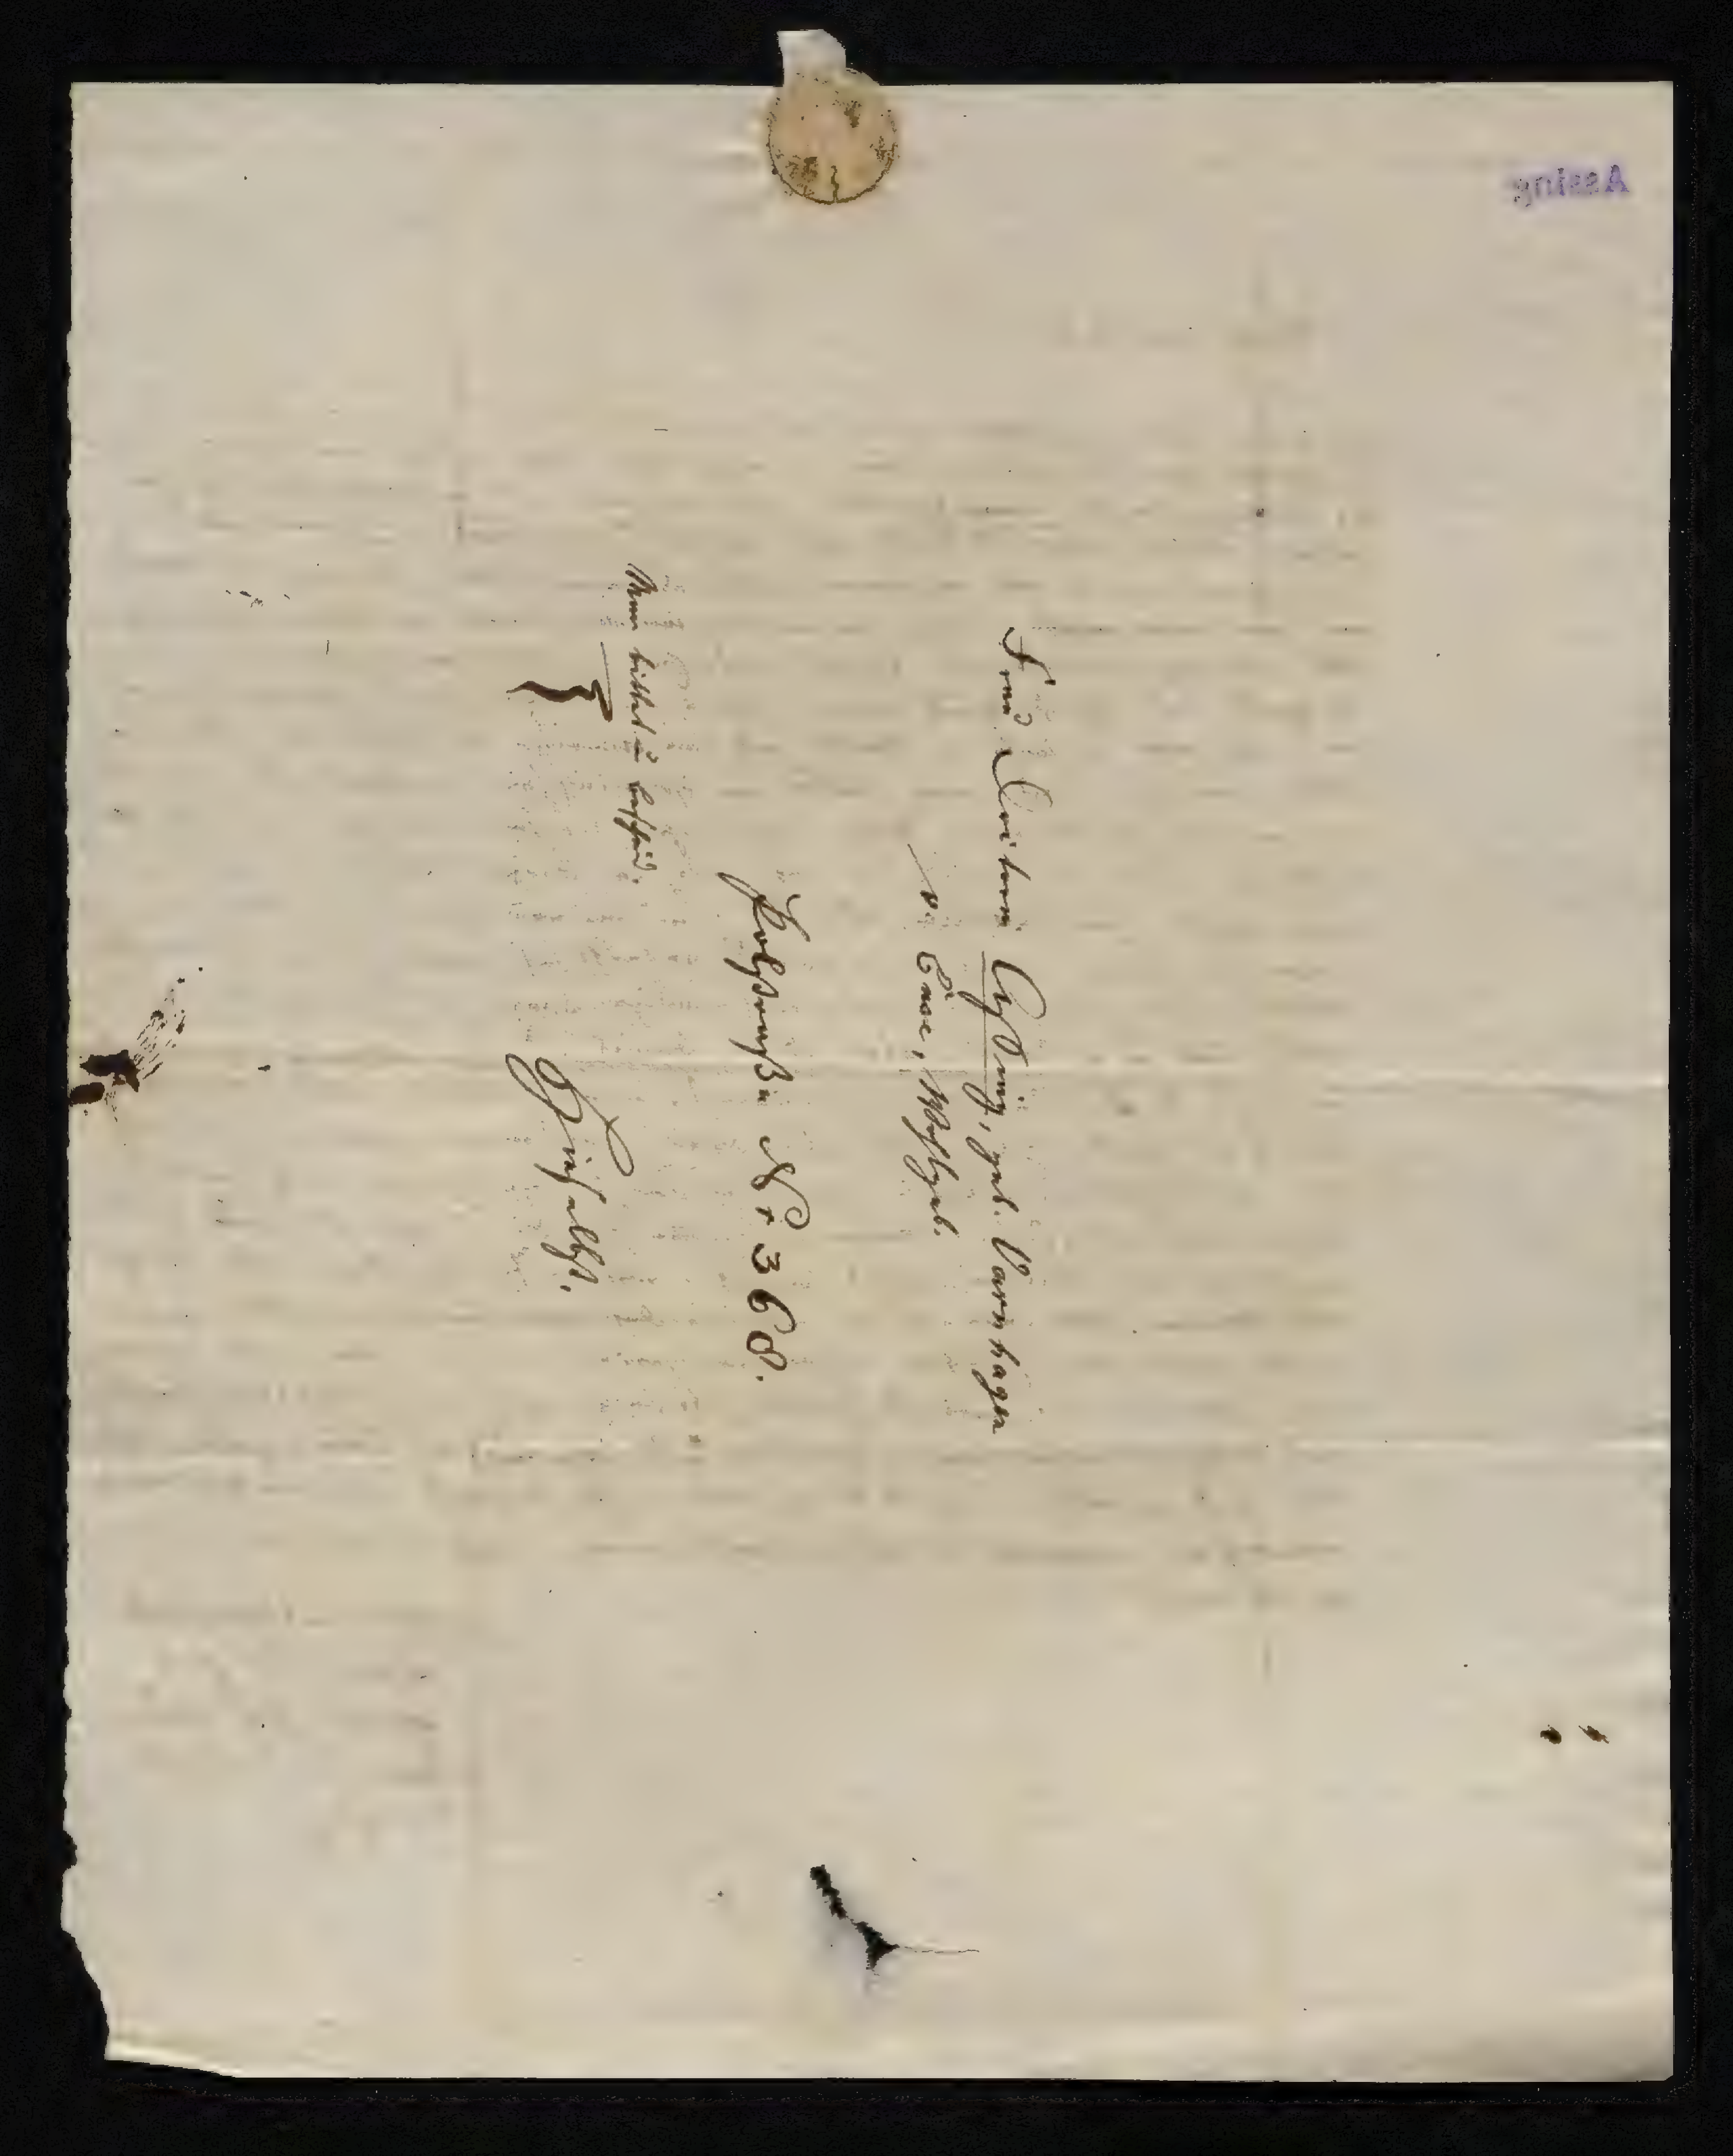 Frau Doctorin Assing, geb. Varnhagen
v. Ense, Wohlgeb.
Poolstraße Nr 368.
Man bittet um Bescheid.
Hieselbst.
Assing